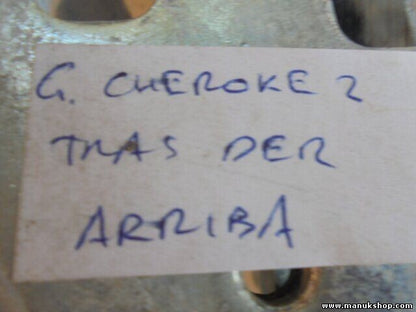 G. CHEROKE 2
TRAS DER
ARRIBA
www.manukshop.com